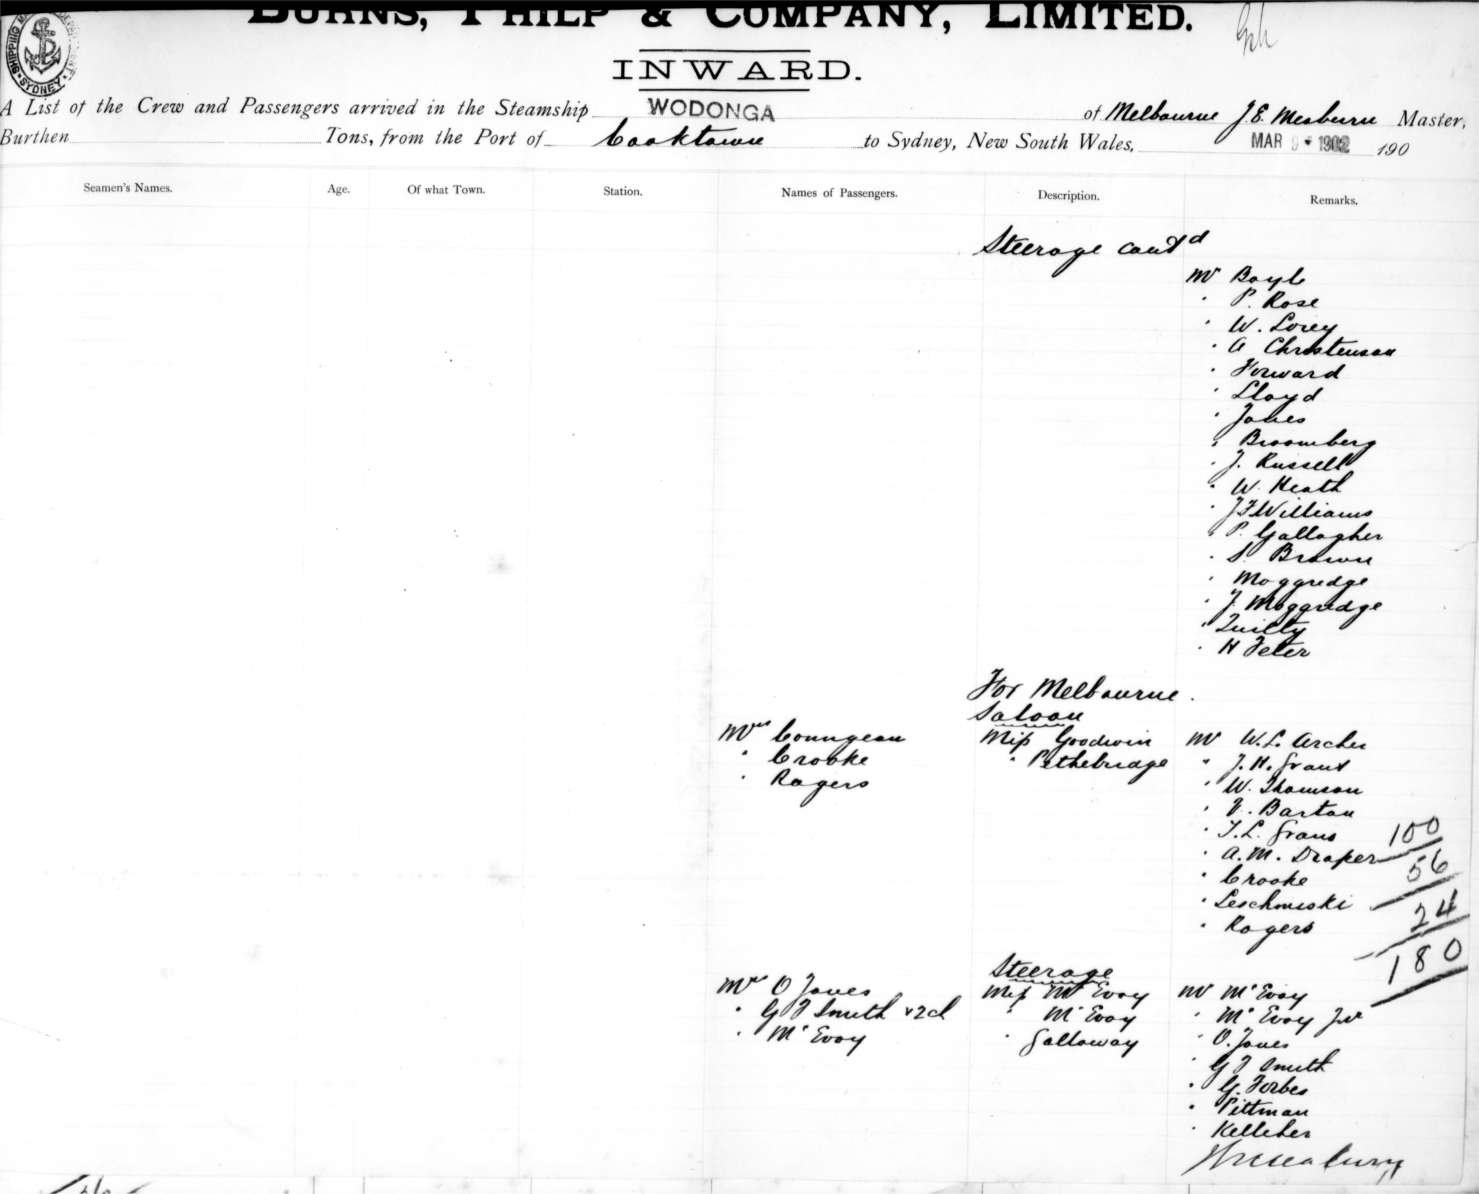 BURNS, PHILP & COMPANY, LIMITED.
INWARD.
SYDNEY
A List of the Crew and Passengers arrived in the Steamship WODONGA of Melbourne J. E. Meaburn Master,
Burthen Tons, from the Port of Cooktown to Sydney, New South Wales, MAR 9 - 1902 190
Seamen's Names. Age. Of what Town. Station. Names of Passengers. Description. Remarks.
Steerage contd
Mr Boyle
" P. Rose
" W. Lorey
" A Christensen
" Forward
" Lloyd
" Jones
" Broomberg
" J. Russell
" W. Heath
" J F Williams
" P. Gallagher
" S. Brown
" Moggredge
" J. Moggredge
" Quilty
" H Feter
For Melbourne.
Saloon
Mrs Coungeau Miss Goodwin Mr W. L. Archer
" Crooke " Pethebridge " J. H. Grant
" Rogers " W. Thomson
" Barton
" T. L. Grano 100
" A. M. Draper 56
" Crooke
" Leschmiski 24
" Rogers 180
Steerage
Mrs O Jones Miss McEvoy Mr McEvoy
" G F Smith & 2 ch " McEvoy " McEvoy Jnr
" McEvoy " Galloway " O. Jones
" G F Smith
" G. Forbes
" Pittman
" Kelleher